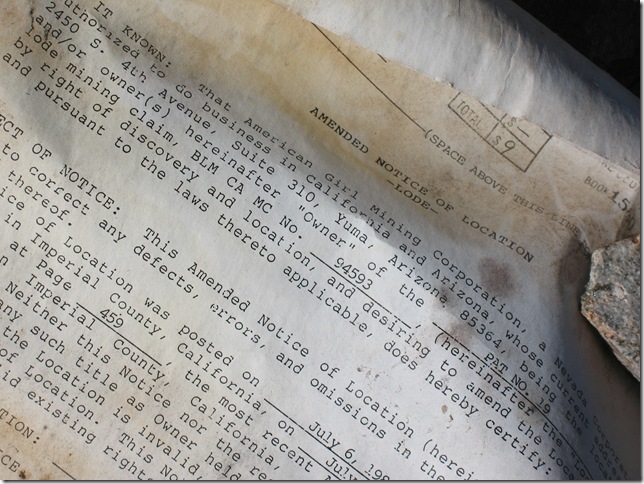 $—
TOTAL $9
BOOK 15
(SPACE ABOVE THIS LINE
AMENDED NOTICE OF LOCATION
-LODE-
IT KNOWN: That American Girl Mining Corporation, a Nevada
authorized to do business in California and Arizona, whose current
2450 S. 4th Avenue, Suite 310, Yuma, Arizona 85364, being the
and/or owner(s) hereinafter "Owner" of the NO. 19
lode mining claim, BLM CA MC NO. 94593, (hereinafter the
by right of discovery and location, and desiring to amend the Lo
and pursuant to the laws thereto applicable, does hereby certify:
ECT OF NOTICE: This Amended Notice of Location (herei
to correct any defects, errors, and omissions in the
thereof.
ice of Location was posted on July 6, 198
in Imperial County, California, on July
at Page 459 the most recent
Imperial County, California,
Neither this Notice nor the re
any such title as Owner held
the Location is invalid,
of Location. This No
id existing rights
TION: